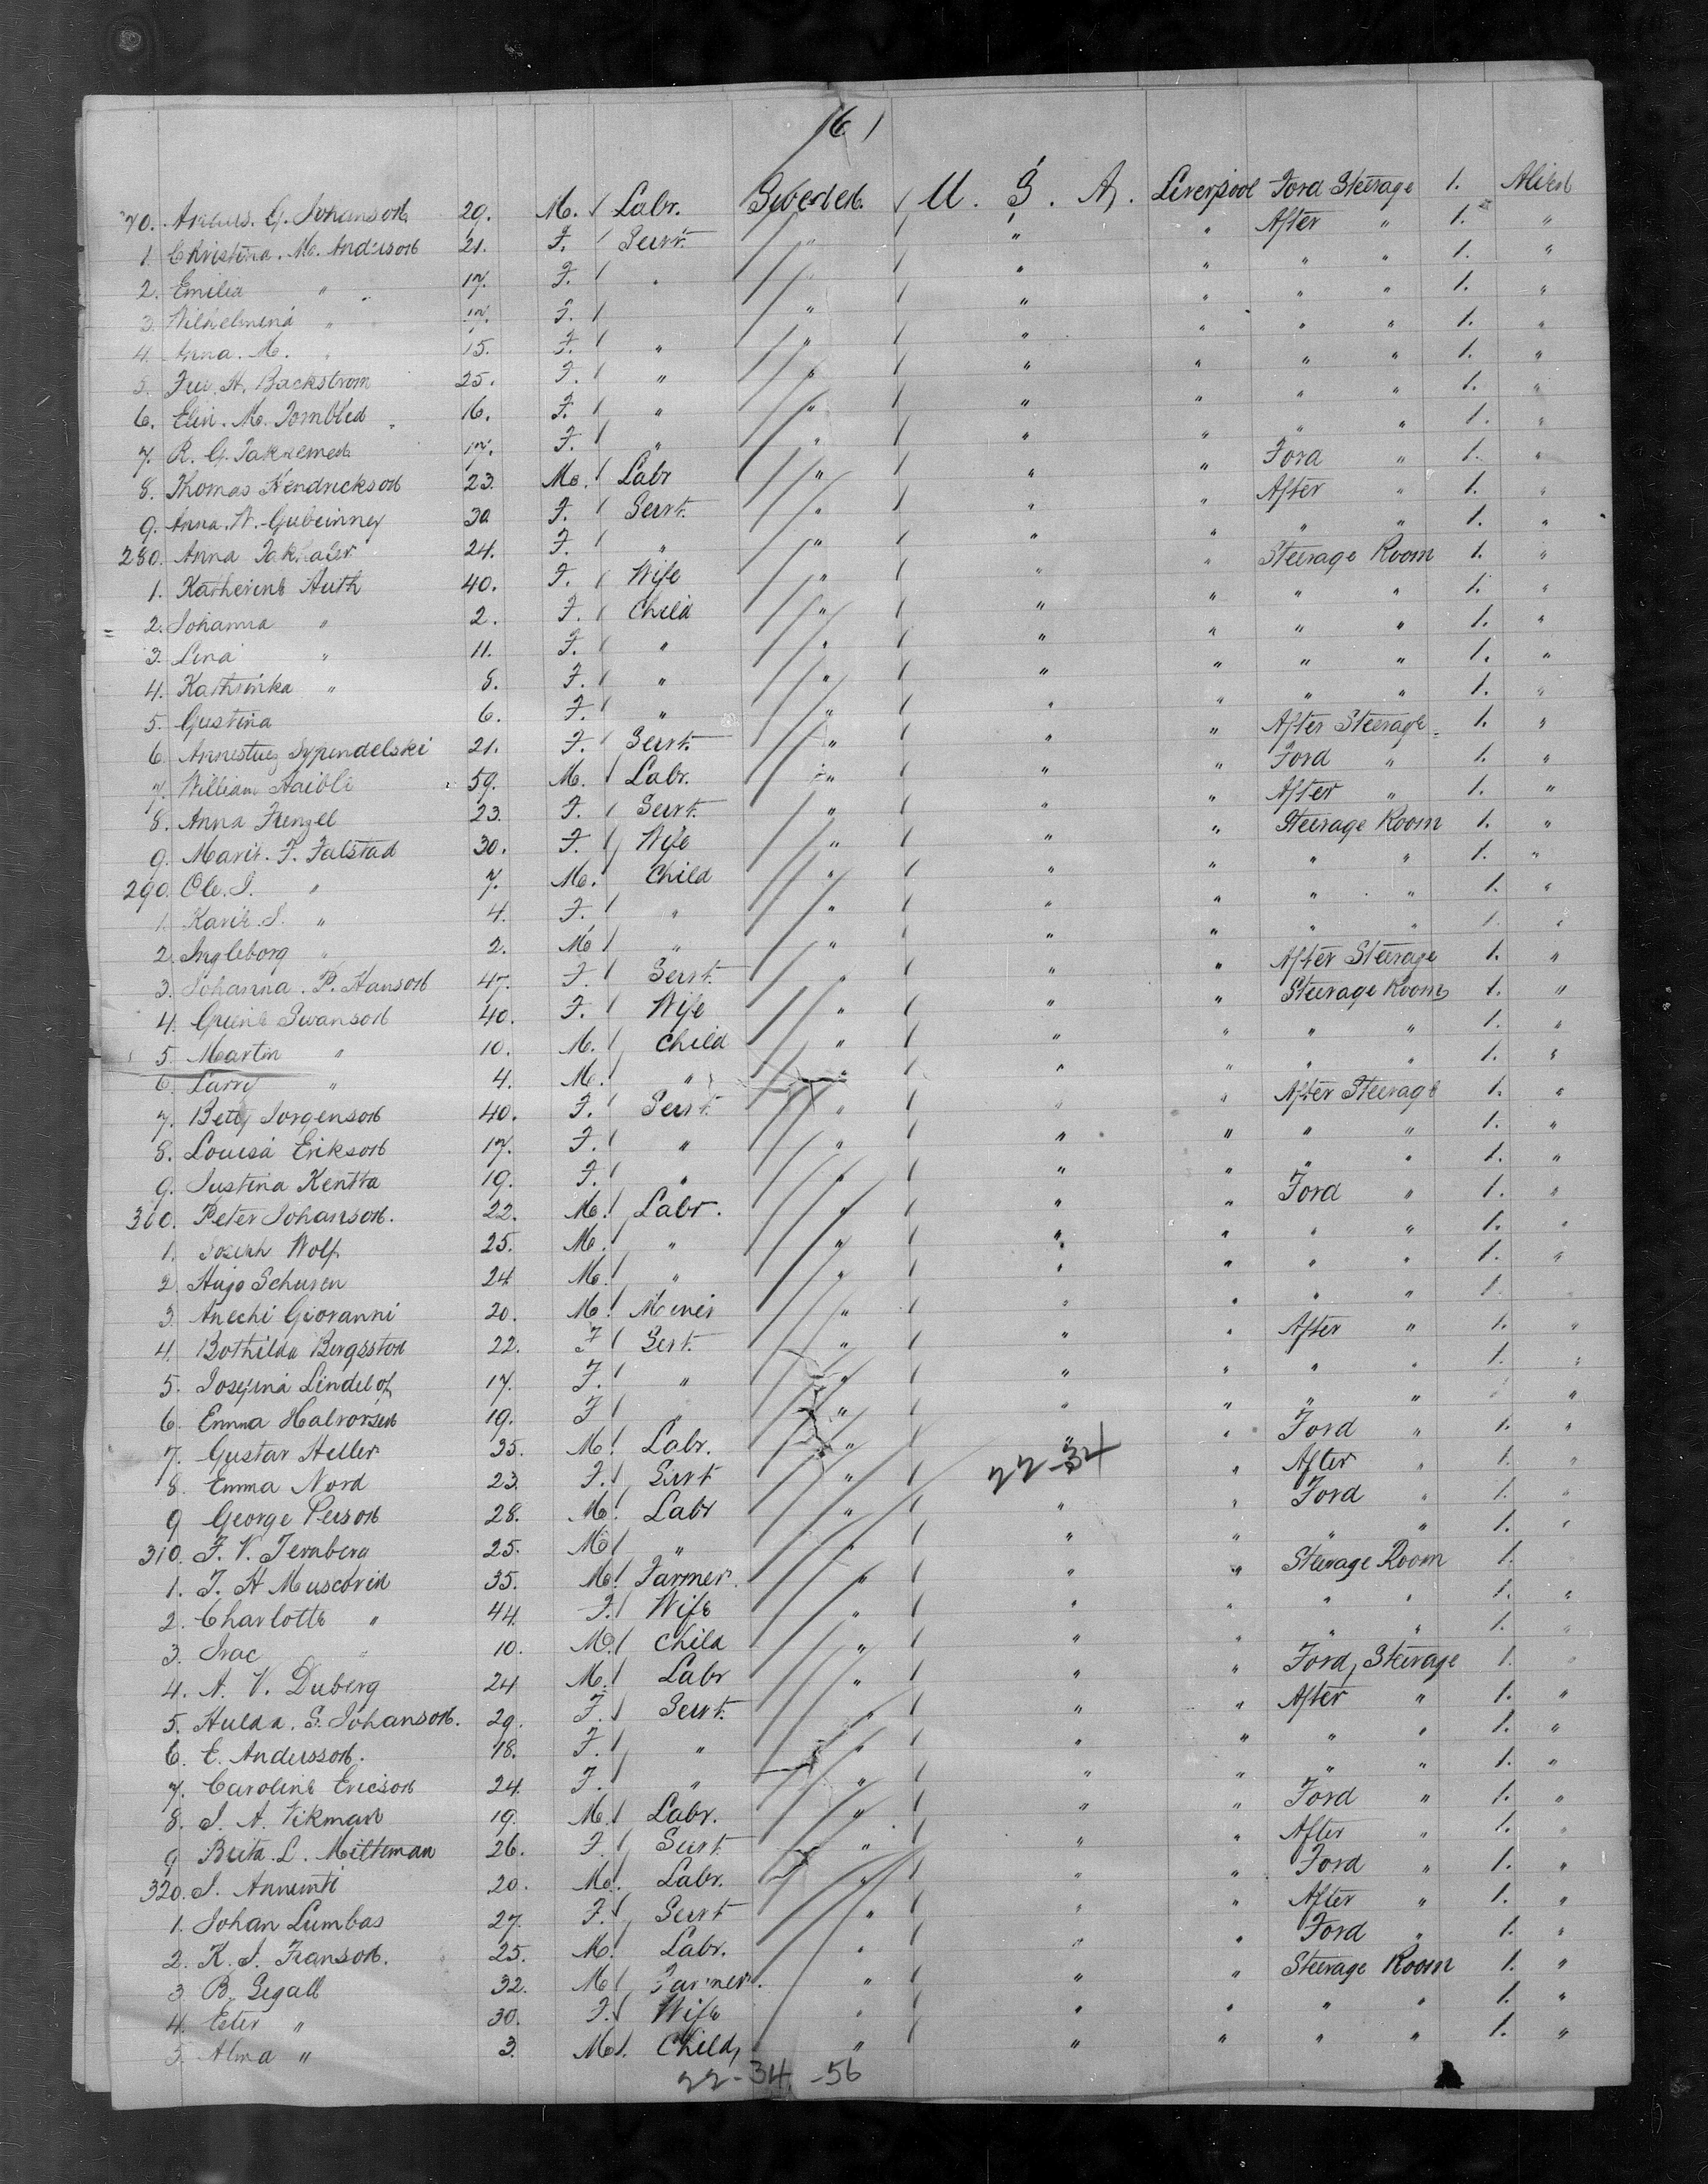 161
70. G. Johanson 29. M. Labr. Sweden. U. S. A. Liverpool Ford Steerage 1. Alien
1. Christina. M. Anderson 21. F. Servt. " " " After " 1. "
2. Emilia " 17. F. " " " " " " 1. "
3. Wilhelmina " 17. F. " " " " " 1. "
4. Anna. M. " 15. F. " " " " " " 1. "
5. H. Backstrom 25. F. " " " " " " 1. "
6. Elin. M. 16. F. " " " " " " 1. "
7. R. G. 17. F. " " " " " " 1. "
8. Thomas Hendrickson 23. M. Labr " " " Ford " 1. "
9. Anna. W. 30 F. Servt. " " " After " 1. "
280. Anna 24. F. " " " " " " 1. "
1. Katherine Huth 40. F. Wife " " " Steerage Room 1. "
2. Johanna " 2. F. Child " " " " " 1. "
3. Lina " 11. F. " " " " " " 1. "
4. Kathrinka " 8. F. " " " " " " 1. "
5. Gustina 6. F. " " " " " " 1. "
6. 21. F. Servt. " " " After Steerage 1. "
7. William Haible 59. M. Labr. " " " Ford " 1. "
8. Anna Frenzel 23. F. Servt. " " " After " 1. "
9. Marit. F. Falstad 30. F. Wife " " " Steerage Room 1. "
290. Ole. J. " 7. M. Child " " " " " 1. "
1. Karit. J. " 4. F. " " " " " " 1. "
2. Ingleborg " 2. M " " " " " " 1. "
3. Johanna. P. Hanson 47. F. Servt. " " " After Steerage 1. "
4. Swanson 40. F. Wife " " " Steerage Room 1. "
5. Martin " 10. M. Child " " " " " 1. "
6. Larry " 4. M. " " " " " " 1. "
7. Betty Jorgenson 40. F. Servt. " " " After Steerage 1. "
8. Louisa Erikson 17. F. " " " " " " 1. "
9. Justina Kentta 19. F. " " " " " " 1. "
300. Peter Johanson. 22. M. Labr. " " " Ford " 1. "
1. Joseph Wolf 25. M. " " " " " " 1. "
2. Hugo Schuren 24 M. " " " " " " 1. "
3. Anechi Giovanni 20. M. Miner " " " " " 1. "
4. Bothilda Bergsston 22. F Sert. " " " After " 1. "
5. Josefina Lindelof 17. F. " " " " " " 1. "
6. Emma Halvorsen 19. F " " " " " " "
7. Gustav Heller 35. M. Labr. " " " Ford " 1. "
22-34
8. Emma Nord 23. F. Servt " " After " 1. "
9 George Person 28. M. Labr " " " Ford " 1. "
310. F. V. 25. M " " " " " " 1. "
1. J. H 35. M. Farmer. " " " Steerage Room 1. "
2. Charlotte " 44. F. Wife " " " " " 1. "
3. Isac " 10. M. Child " " " " " 1. "
4. A. V. Duberg 24 M. Labr " " " Ford, Steerage 1. "
5. Hulda. S. Johanson. 29. F. Servt. " " " After " 1. "
6. E. Andersson. 18. F. " " " " " " 1. "
7. Caroline Ericson 24. F. " " " " " " 1. "
8. J. A. Vikman 19. M. Labr. " " " Ford " 1. "
9 Brita. L. Miltiman 26. F. Servt. " " " After " 1. "
320. J. 20. M. Labr. " " " Ford " 1. "
1. Johan Lumbas 27. F. Servt " " " After " 1. "
2. K. J. Franson. 25. M. Labr. " " " Ford " 1. "
3 B. Segall 32. M Farmer. " " " Steerage Room 1. "
4. Ester " 30. F. Wife " " " " " 1. "
5. Alma " 3. M. Child, " " " " " 1. "
22-34-56